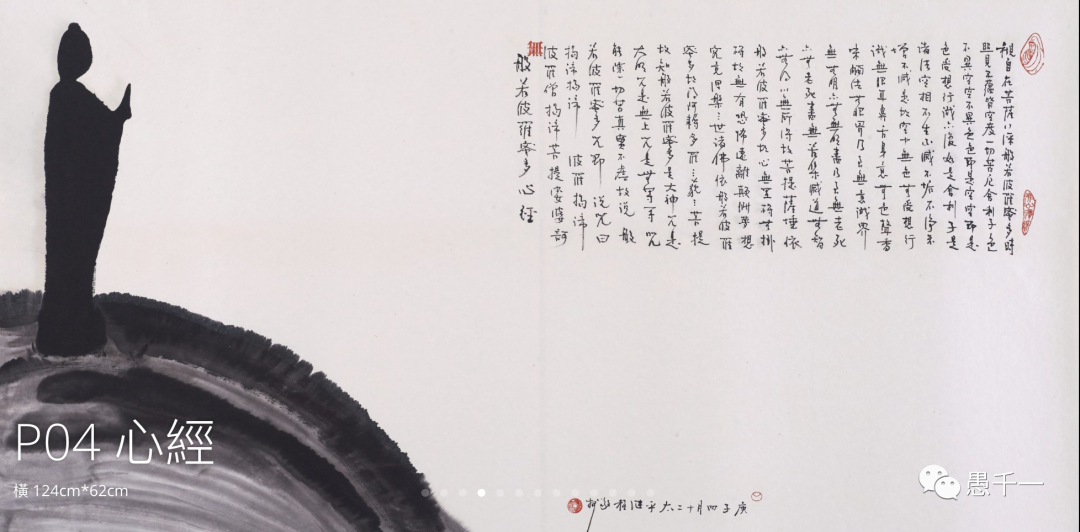 觀自在菩薩行深般若波羅蜜多時
照見五蘊皆空度一切苦厄舍利子色
不異空空不異色色即是空空即是
色受想行識亦復如是舍利子是
諸法空相不生不滅不垢不淨不
增不減是故空中無色無受想行
識無眼耳鼻舌身意無色聲香
味觸法無眼界乃至無意識界
無無明亦無無明盡乃至無老死
亦無老死盡無苦集滅道無智
亦無得以無所得故菩提薩埵依
般若波羅蜜多故心無罣礙無掛
礙故無有恐怖遠離顛倒夢想
究竟涅槃三世諸佛依般若波羅
蜜多故得阿耨多羅三藐三菩提
故知般若波羅蜜多是大神咒是
大明咒是無上咒是無等等咒
能除一切苦真實不虛故說般
若波羅蜜多咒即說咒曰
揭諦揭諦 波羅揭諦
波羅僧揭諦 菩提娑婆訶
無
般若波羅蜜多心經
P04 心經
橫 124cm*62cm
庚子四月十二
愚千一